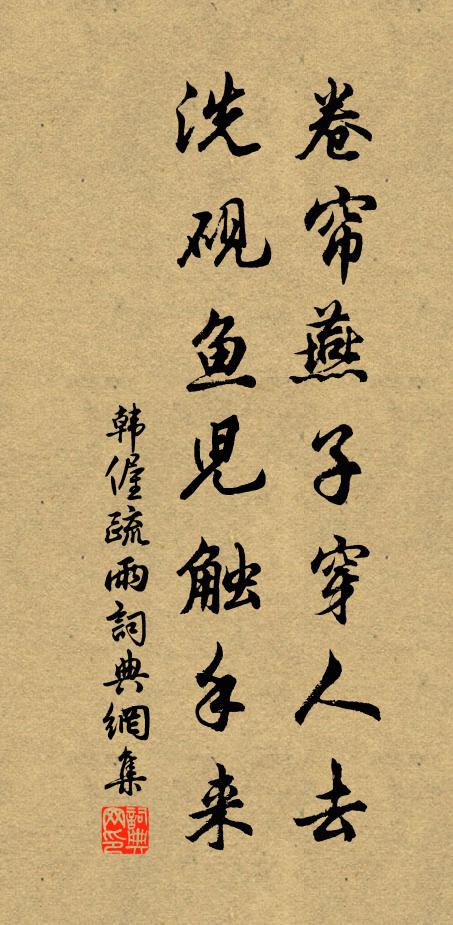 卷帘燕子穿人去
洗砚鱼児触手来
韩偓疏雨詞典網集
詞典网印